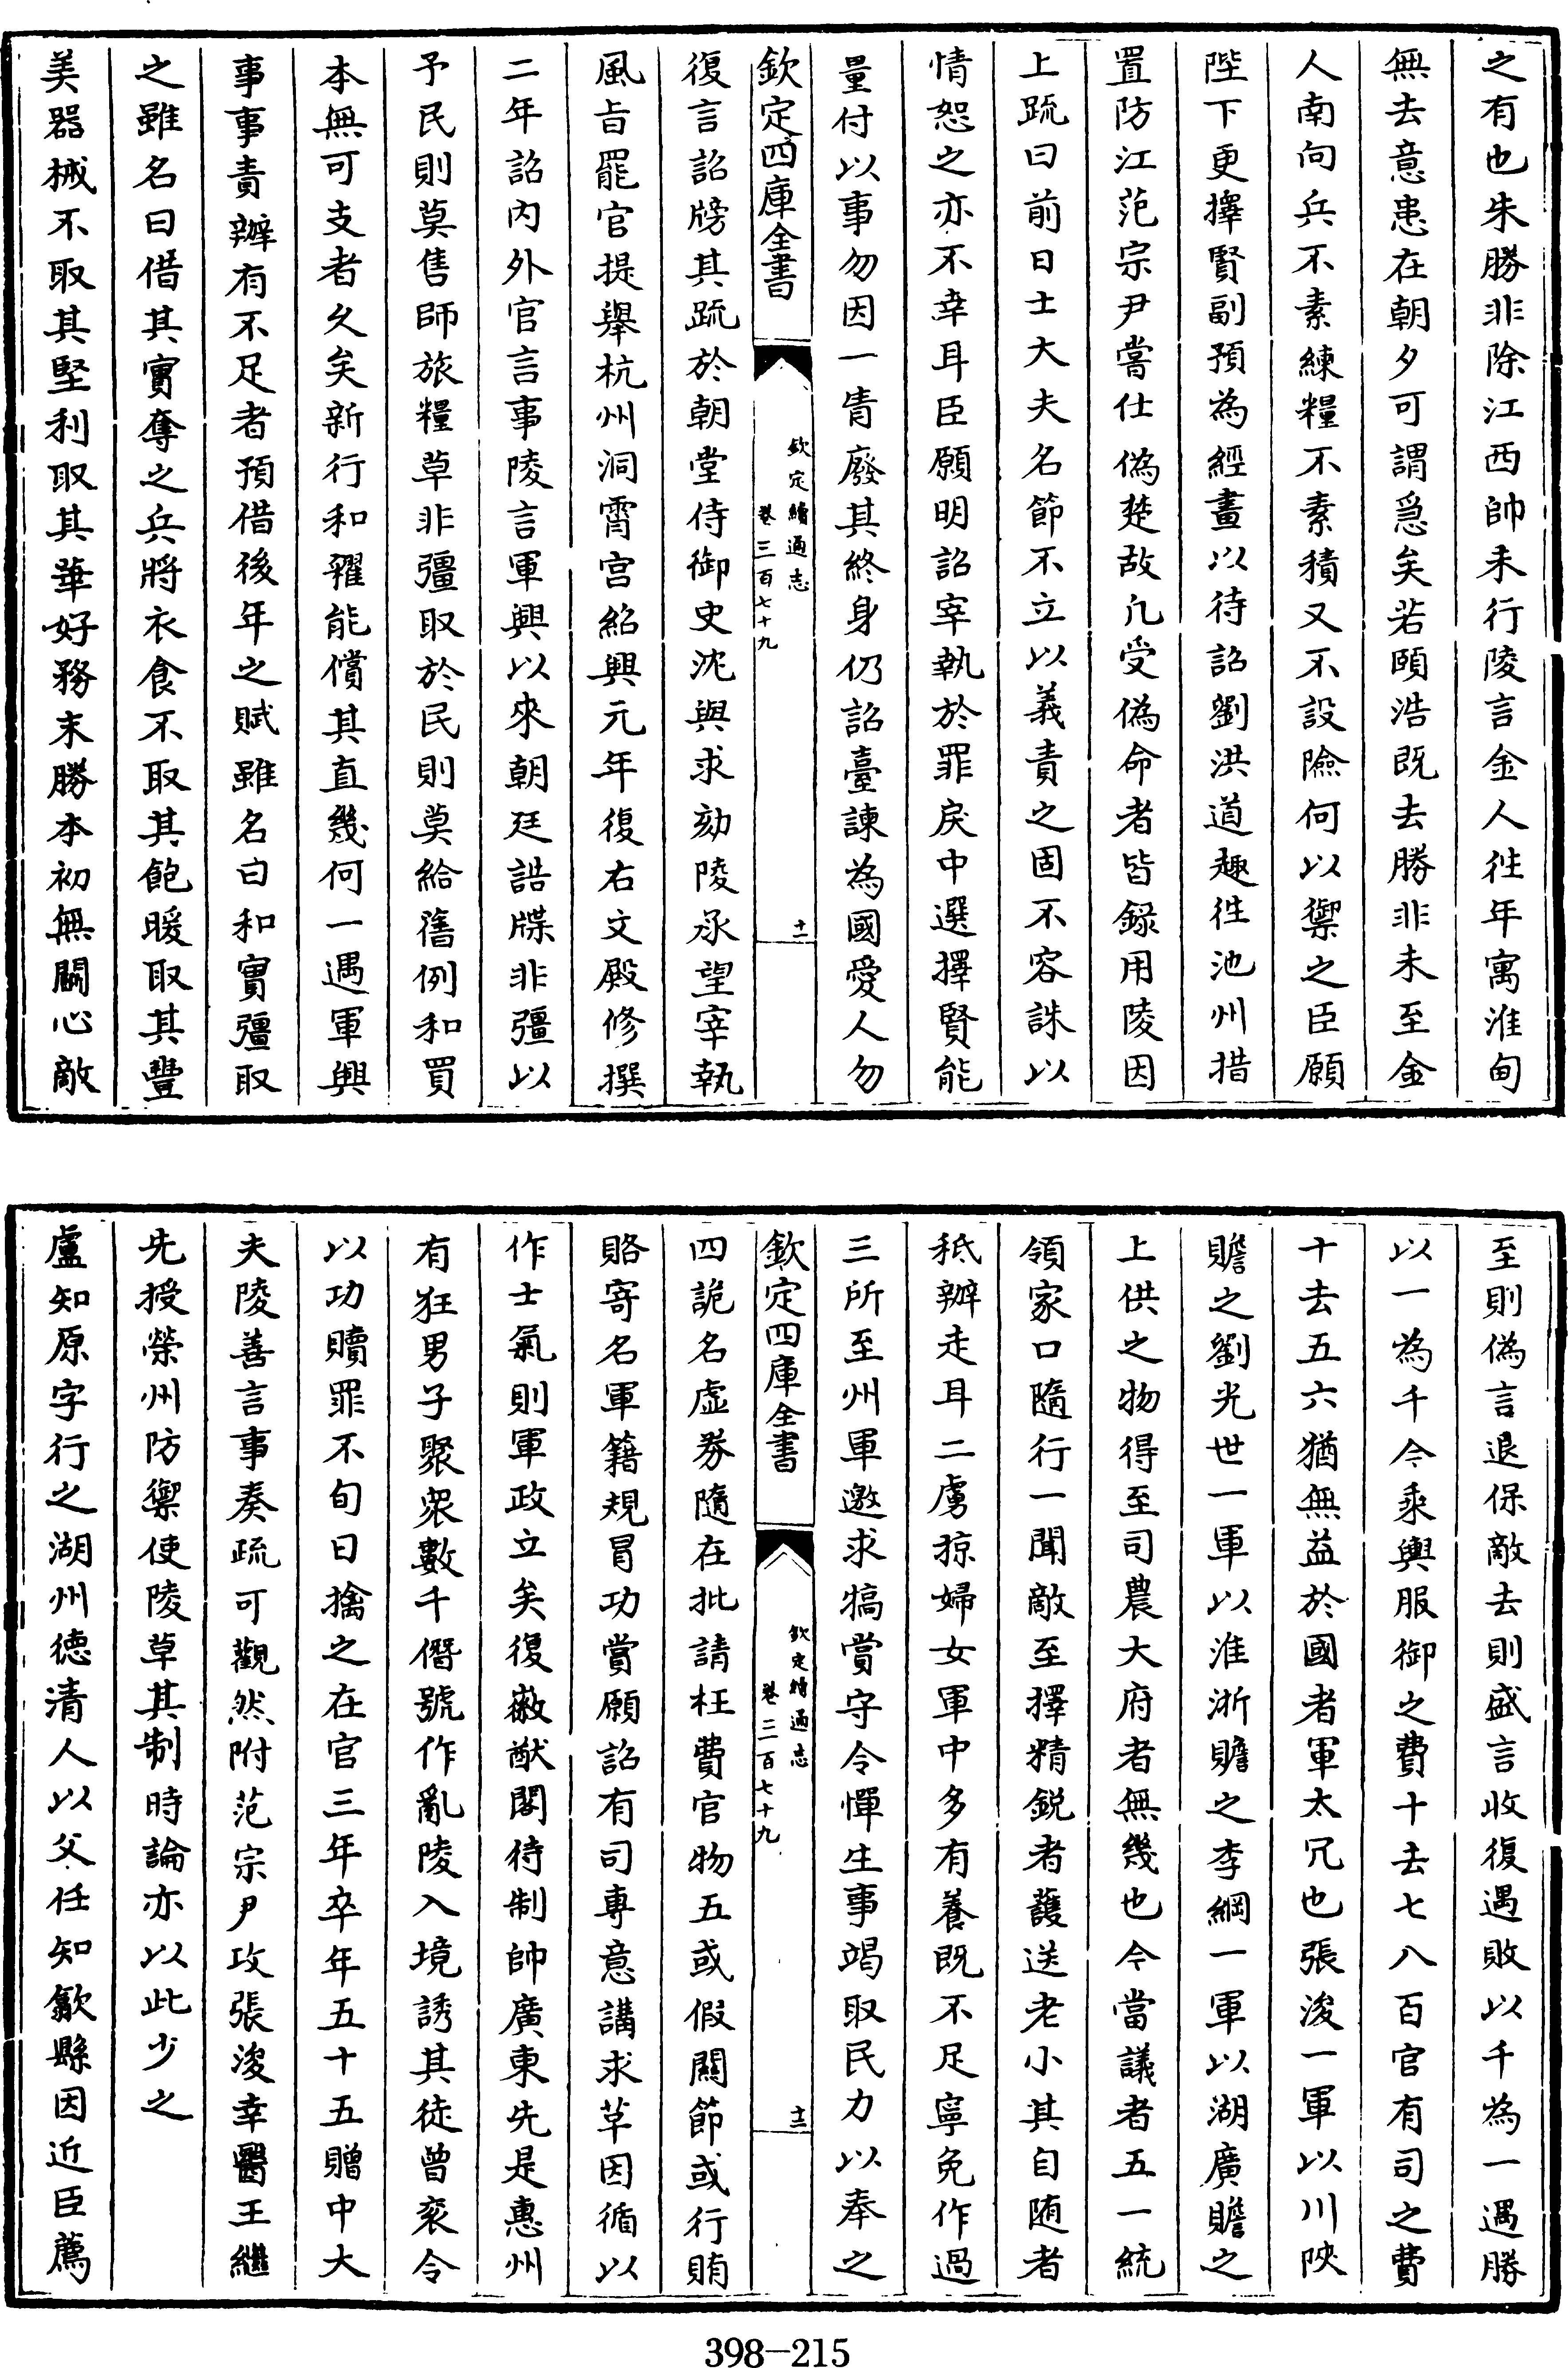 之有也朱勝非除江西帥未行陵言金人徃年寓淮甸
無去意患在朝夕可謂急矣若頤浩既去勝非未至金
人南向兵不素練糧不素積又不設險何以禦之臣願
陛下更擇賢副預為經畫以待詔劉洪道趣徃池州措
置防江范宗尹嘗仕偽楚故凢受偽命者皆録用陵因
上疏曰前日士大夫名節不立以義責之固不容誅以
情恕之亦不幸耳臣願明詔宰執於罪戾中選擇賢能
量付以事勿因一眚廢其終身仍詔臺諫為國愛人勿
欽定四庫全書
欽定續通志
卷三百七十九
十一
復言詔牓其疏於朝堂侍御史沈與求劾陵承望宰執
風旨罷官提舉杭州洞霄宫紹興元年復右文殿修撰
二年詔内外官言事陵言軍興以來朝廷誥牒非彊以
予民則莫售師旅糧草非彊取於民則莫給舊例和買
本無可支者久矣新行和糴能償其直幾何一遇軍興
事事責辦有不足者預借後年之賦雖名曰和實彊取
之雖名曰借其實奪之兵將衣食不取其飽暖取其豐
美器械不取其堅利取其華好務末勝本初無闘心敵
至則偽言退保敵去則盛言收復遇敗以千為一遇勝
以一為千今乘輿服御之費十去七八百官有司之費
十去五六猶無益於國者軍太冗也張浚一軍以川陜
贍之劉光世一軍以淮浙贍之李綱一軍以湖廣贍之
上供之物得至司農大府者無幾也今當議者五一統
領家口隨行一聞敵至擇精鋭者護送老小其自随者
秪辦走耳二虜掠婦女軍中多有養既不足寧免作過
三所至州軍邀求犒賞守令憚生事竭取民力以奉之
欽定四庫全書
欽定續通志
卷三百七十九
十二
四詭名虛券隨在批請枉費官物五或假闗節或行賄
賂寄名軍籍規冒功賞願詔有司專意講求革因循以
作士氣則軍政立矣復徽猷閣待制帥廣東先是惠州
有狂男子聚衆數千僭號作亂陵入境誘其徒曾袞令
以功贖罪不旬日擒之在官三年卒年五十五贈中大
夫陵善言事奏疏可觀然附范宗尹攻張浚幸醫王繼
先授榮州防禦使陵草其制時論亦以此少之
盧知原字行之湖州德清人以父任知歙縣因近臣薦
398-215